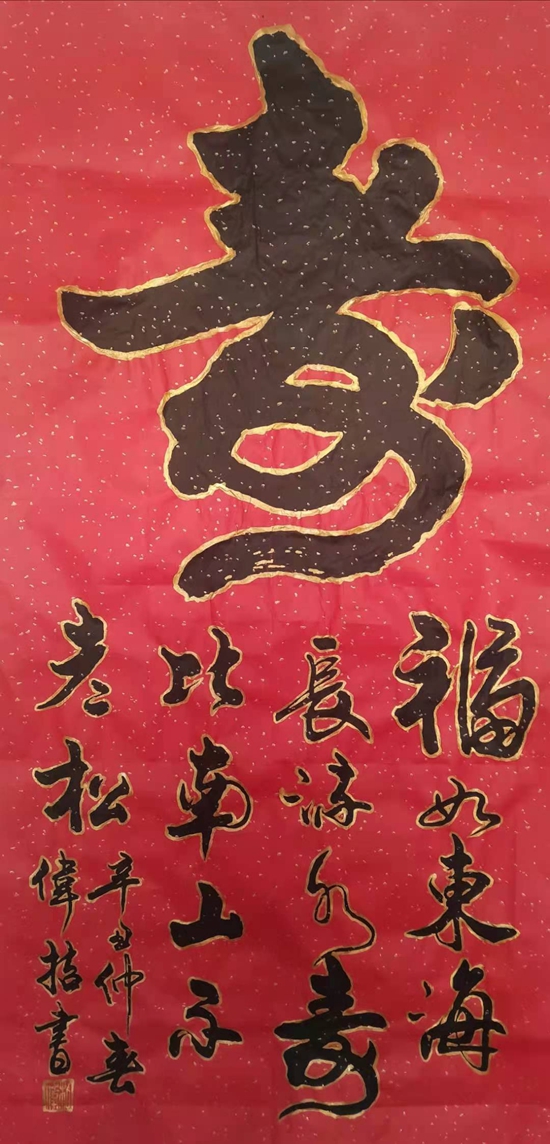 寿
福如東海
長流水寿
比南山不
老松
辛丑仲春
偉哲書